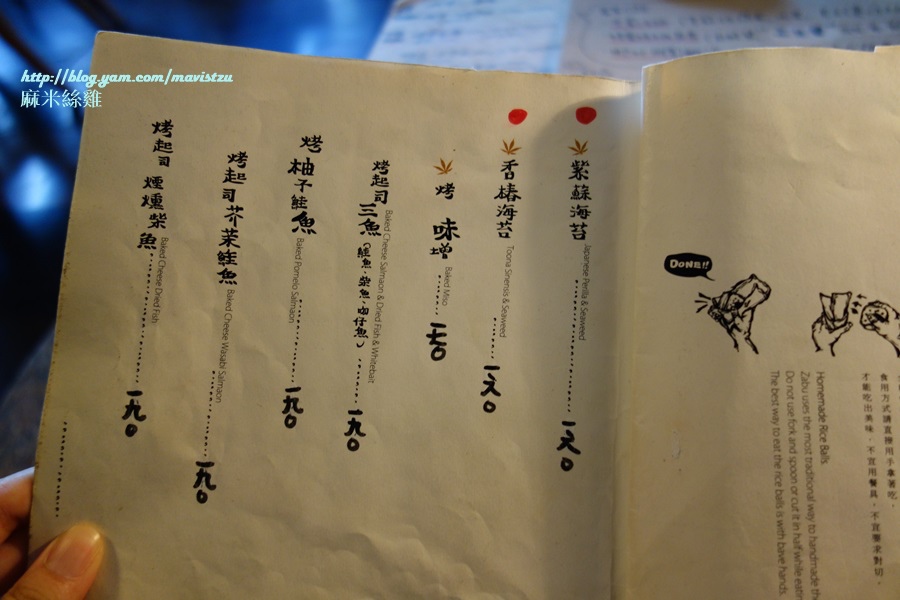 http://blog.yam.com/mavistzu
麻米絲雞
紫蘇海苔
Japanese Perilla & Seaweed
一六0
香椿海苔
Toona Sinensis & Seaweed
一六0
烤 味噌
Baked Miso
一七0
烤起司三魚(鮭魚·柴魚·吻仔魚)
Baked Cheese Salmaon & Dried Fish & Whitebait
一九0
烤柚子鮭魚
Baked Pomelo Salmaon
一九0
烤起司芥茉鮭魚
Baked Cheese Wasabi Salmaon
一九0
烤起司 煙燻柴魚
Baked Cheese Dried Fish
一九0
DONE!!
食用方式請直接用手拿著吃,
才能吃出美味,不宜用餐具,不宜要求對切,
Homemade Rice Balls
Zabu uses the most traditional way to handmade th
Do not use fork and spoon or cut it in half while eatin
The best way to eat the rice balls is with bave hands.